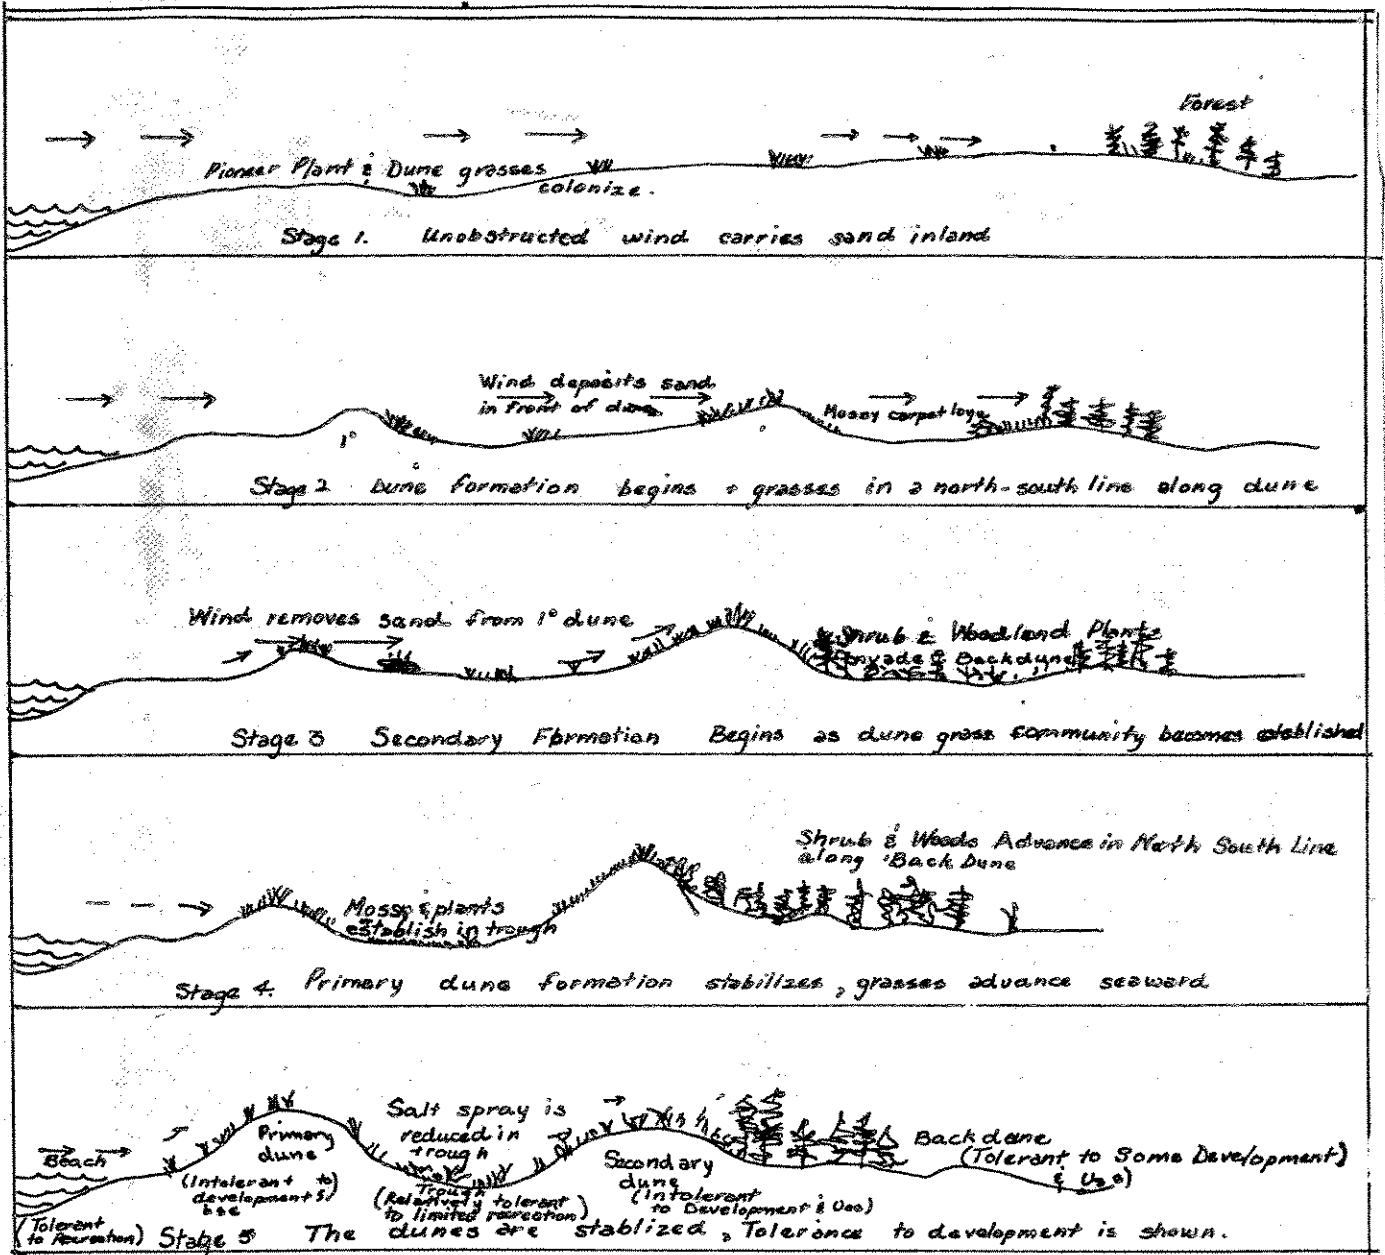 Forest
Pioneer Plant & Dune grasses
colonize.
Stage 1. Unobstructed wind carries sand inland
Wind deposits sand
in front of dune
Mossy carpet
1°
Stage 2 Dune formation begins + grasses in a north-south line along dune
Wind removes sand from 1° dune
Shrub & Woodland Plants
Invade & Backdune
Stage 3 Secondary Formation Begins as dune grass community becomes established
Shrub & Woods Advance in North South Line
along Back Dune
Moss & plants
establish in trough
Stage 4. Primary dune formation stabilizes, grasses advance seaward
Salt spray is
reduced in
trough
Primary
dune
Beach
Backdune
(Tolerant to Some Development)
& Use)
Secondary
dune
(Intolerant to)
development &
Trough
(Relatively tolerant
to limited recreation)
(Intolerant
to Development & Use)
(Tolerant
to Recreation)
Stage 5 The dunes are stablized, Tolerance to development is shown.